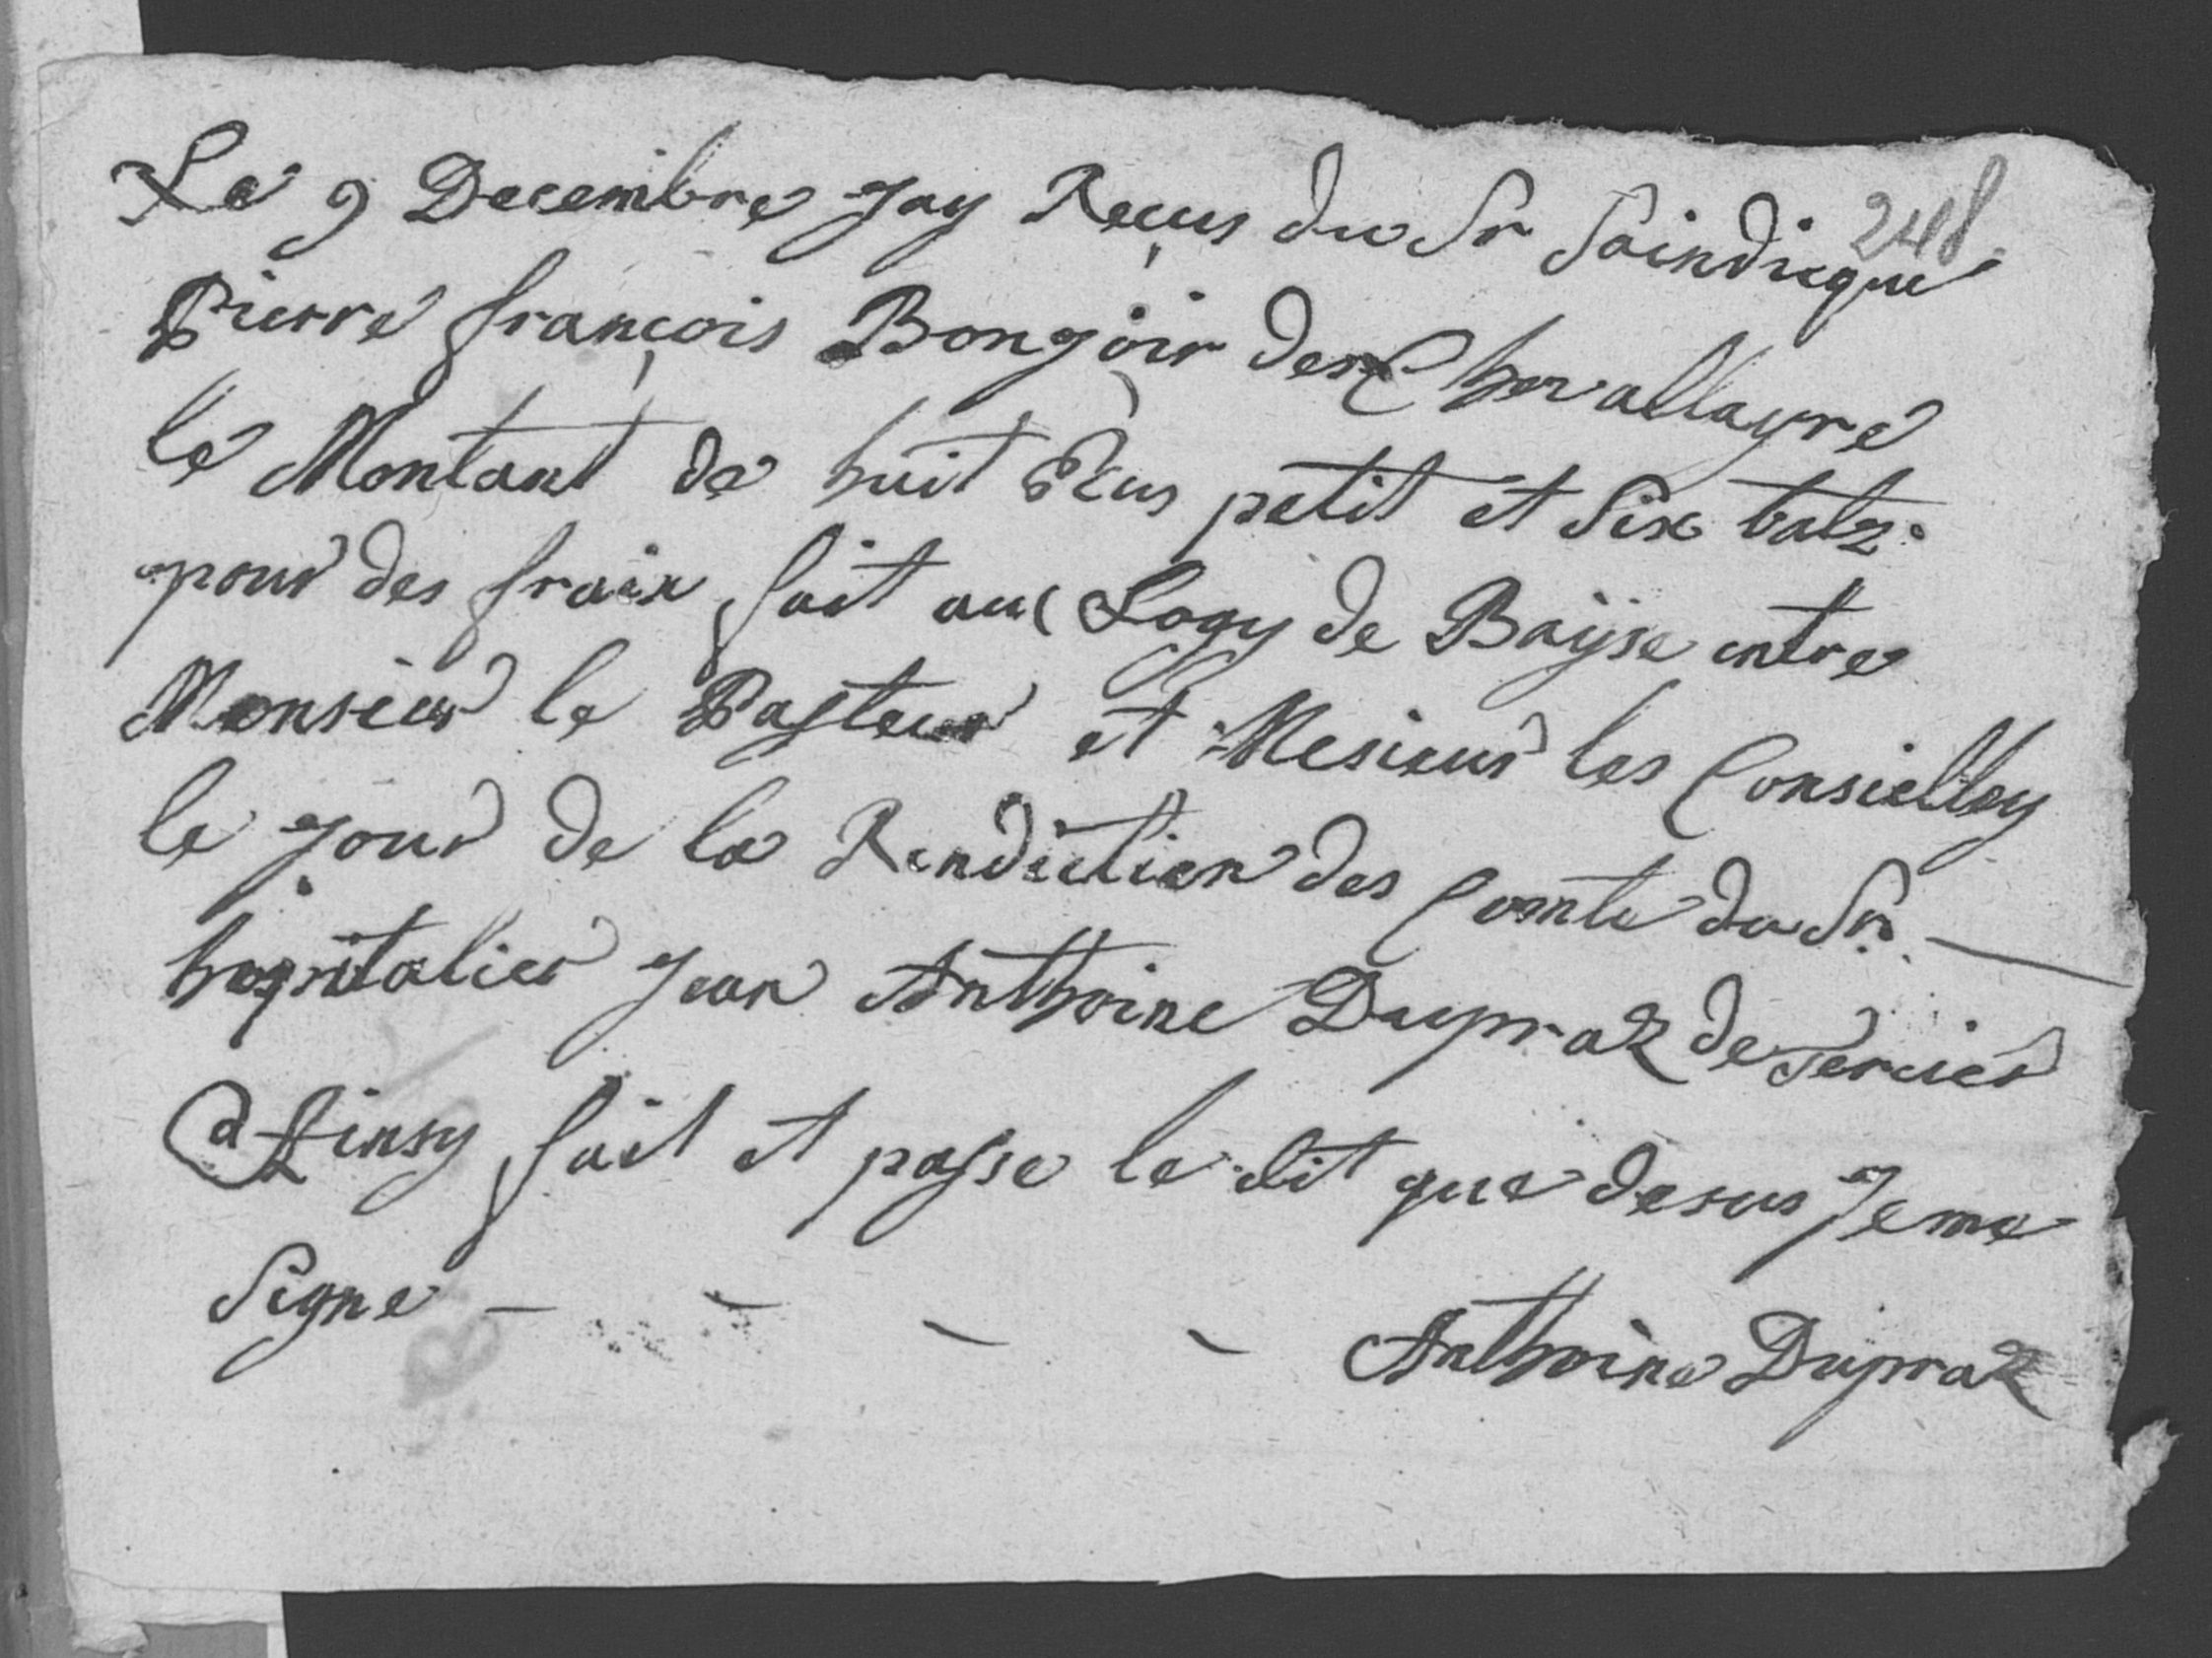 248
Le 9 Decembre Jay Reçus du Sr Saindicque
Pierre françois Bongoir des Chevallayre
le Montant de huit Ecus petit et Six batz
pour des fraix fait au Logy de Bayse entre
Monsieur le Pasteur et Mesieur les Consielley
le Jour de la Rendiction des Comte du Sr. —
hospitalier Jean Anthoine Dupraz de Sercier
Ainsy fait et passe le dit que desus Je me
Signe — — — — Anthoine Dupraz